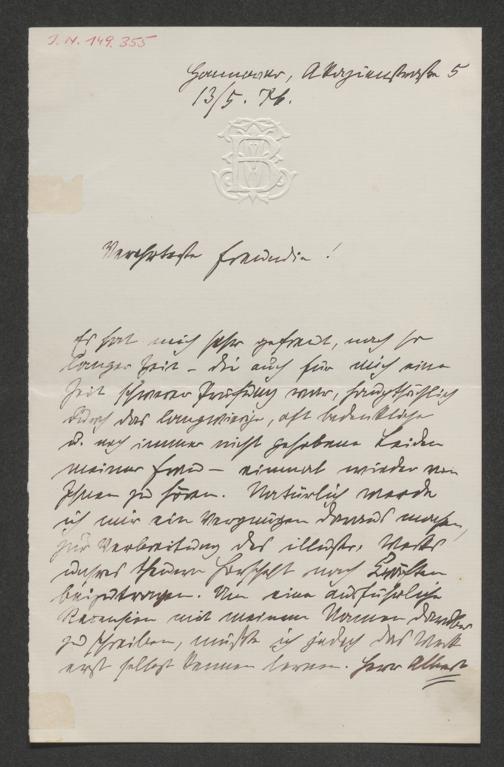 I. N. 149.355
Hannover, Akazienstraße 5
13/5. 76.
B
Verehrteste Freundin!
Es hat mich sehr gefreut, nach so
langer Zeit – die auch für mich eine
Zeit schwerer Prüfung war, hauptsächlich
durch das langwierige, oft bedenkliche
u. noch immer nicht gehobene Leiden
meiner Frau – einmal wieder von
Ihnen zu hören. Natürlich werde
ich mir ein Vergnügen daraus machen,
zur Verbreitung des illustr. Werks
unsres theuern nach Kräften
beizutragen. Um eine ausführliche
Recension mit meinem Namen darüber
zu schreiben, müßte ich jedoch das Werk
erst selbst kennen lernen. Herr Albert